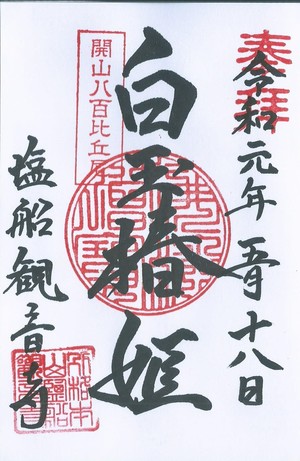 奉拝
令和元年五月十八日
開山八百比丘尼
白玉椿姫
塩船観音寺